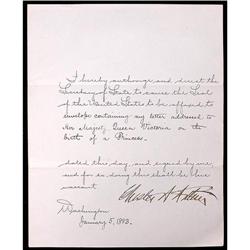 I hereby authorize and direct the
Secretary of State to cause the Seal
of the United States to be affixed to
envelope containing my letter addressed to
Her Majesty Queen Victoria on the
birth of a Princess.
dated this day, and signed by me,
and for so doing this shall be his
warrant.
Chester A Arthur
Washington
January 5, 1883.